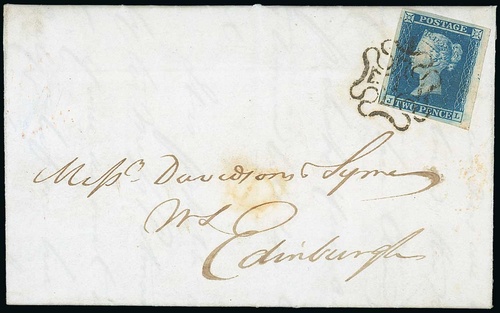 POSTAGE
J TWO PENCE L
Messrs. Davidson & Syme
WS
Edinburgh